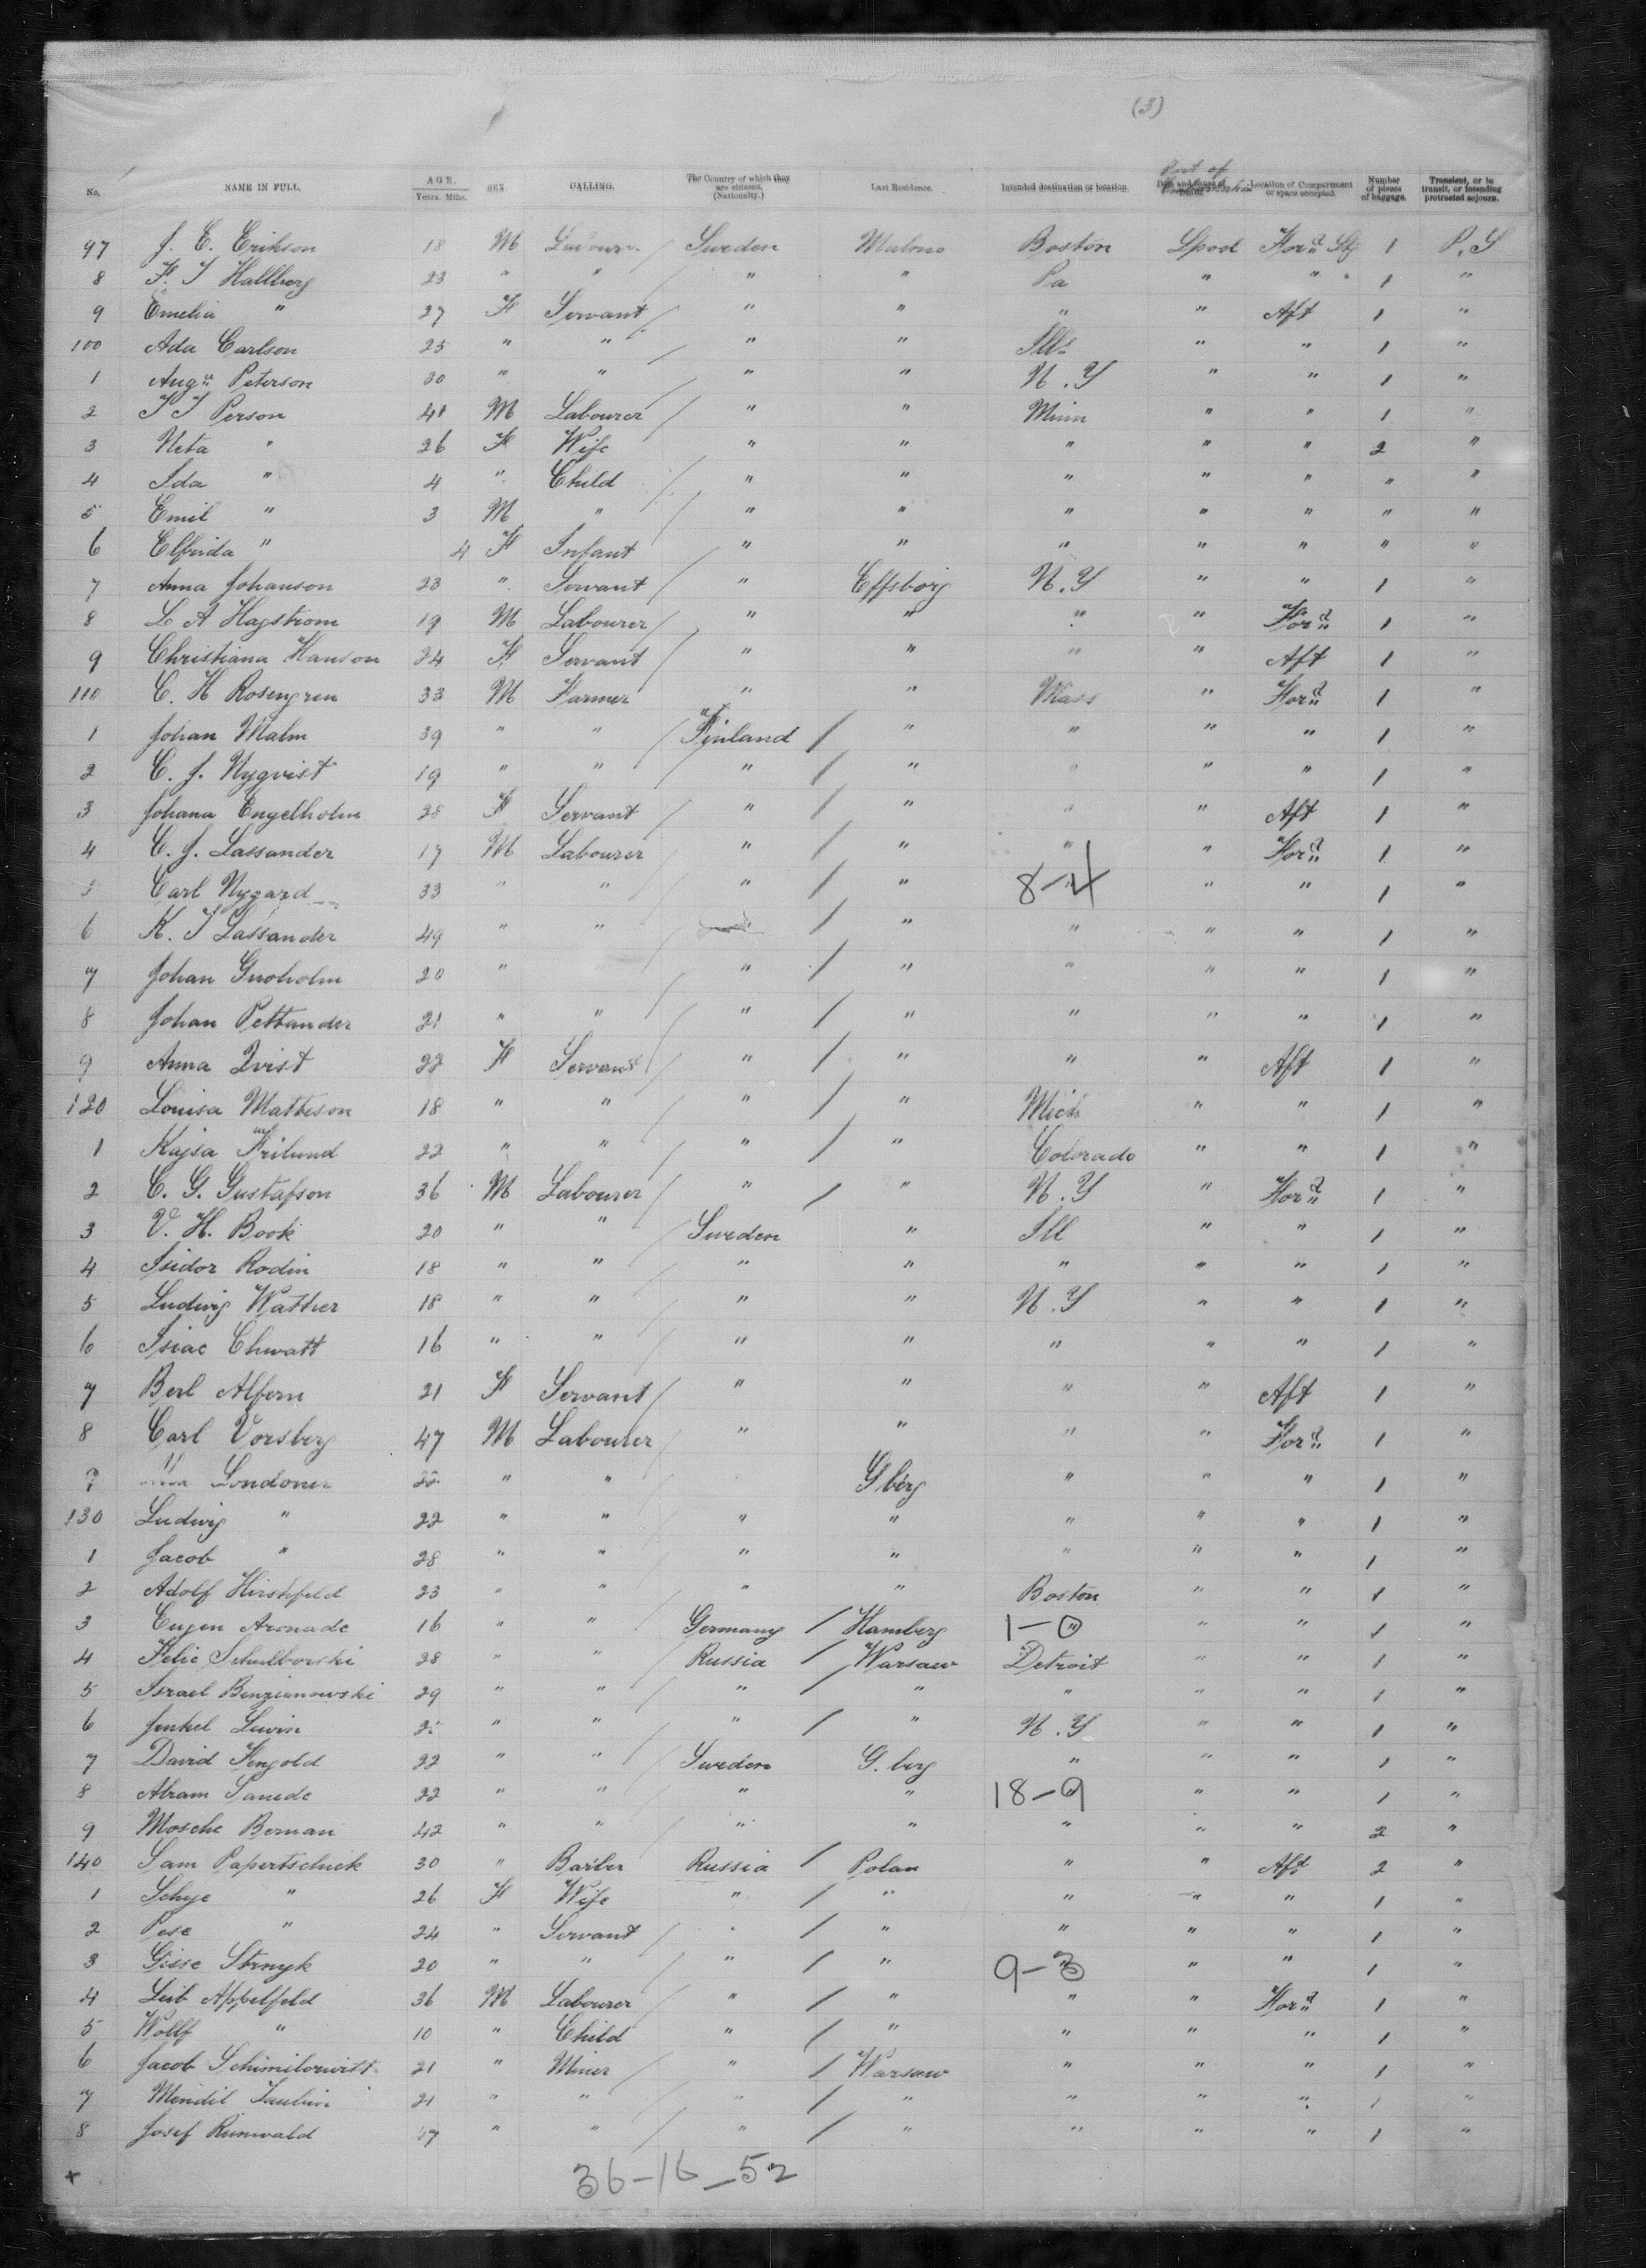 (3)
Port of
No. NAME IN FULL. AGE. Years. Mths. SEX. CALLING. The Country of which they are citizens. (Nationality.) Last Residence. Intended destination or location. Location of Compartment or space occupied. Number of pieces of baggage. Transient, or in transit, or intending protracted sojourn.
97 J. E. Erikson 18 M Labourer Sweden Malmo Boston Lpool Ford Stg 1 P. S
8 F. T Hallberg 23 " " " " Pa " " " 1 "
9 Emelia " 27 F Servant " " " " Aft 1 "
100 Ada Carlson 25 " " " " Ills " " 1 "
1 Auga Peterson 30 " " " " N. Y " " 1 "
2 J J Person 41 M Labourer " " Minn " " 1 "
3 Neta " 26 F Wife " " " " " 2 "
4 Ida " 4 " Child " " " " " " "
5 Emil " 3 M " " " " " " " "
6 Elfrida " 4 F Infant " " " " " " "
7 Anna Johanson 23 " Servant " Effsborg N. Y " " 1 "
8 L A Hagstrom 19 M Labourer " " " " Ford 1 "
9 Christiana Hanson 24 F Servant " " " " Aft 1 "
110 C. H Rosengren 33 M Farmer " " Mass " Ford 1 "
1 Johan Malm 39 " " Finland " " " " 1 "
2 C. J. Nyqvist 19 " " " " " " " 1 "
3 Johana Engelholm 28 F Servant " " " " Aft 1 "
4 C. J. Lassander 17 M Labourer " " " " Ford 1 "
5 Carl Nygard 33 " " " " 8-4 " " 1 "
6 K. J Lassander 49 " " " " " " 1 "
7 Johan Gnoholm 20 " " " " " " 1 "
8 Johan Pettander 21 " " " " " " " 1 "
9 Anna Qvist 22 F Servant " " " " Aft 1 "
120 Louisa Matteson 18 " " " " Mich " " 1 "
1 Kajsa Frilund 22 " " " " Colorado " " 1 "
2 C. G. Gustafson 36 M Labourer " " N. Y " Ford 1 "
3 V. H. Book 20 " " Sweden " Ill " " 1 "
4 Isidor Rodin 18 " " " " " " " 1 "
5 Ludwig Wather 18 " " " " N. Y " " 1 "
6 Isiac Chwatt 16 " " " " " " " 1 "
7 Berl Alfern 21 F Servant " " " " Aft 1 "
8 Carl Vorsberg 47 M Labourer " " " " Ford 1 "
9 Londoner " " G berg " " " 1 "
130 Ludwig " 22 " " " " " " " 1 "
1 Jacob " 28 " " " " " " " 1 "
2 Adolf Hirshfeld 23 " " " " Boston " " 1 "
3 Eugen Aronade 16 " " Germany Hamberg 1-0 " " 1 "
4 Felic Schulborski 28 " " Russia Warsaw Detroit " " 1 "
5 Israel Benzianowski 29 " " " " " " " 1 "
6 Jenkel Lewin " " " " N. Y " " 1 "
7 David Fengold 22 " " Sweden G. berg " " " 1 "
8 Abram Sanede 22 " " " " 18-9 " " 1 "
9 Mosche Berman 42 " " " " " " " 2 "
140 Sam Papertschuck 30 " Barber Russia Polan " " Aft 2 "
1 Schye " 26 F Wife " " " " " 1 "
2 Pese " 24 " Servant " " " " " 1 "
3 Gisse Strnyk 20 " " " " 9-3 " " 1 "
4 Leib Appelfeld 36 M Labourer " " " " Ford 1 "
5 Wolff " 10 " Child " " " " " 1 "
6 Jacob Schimilowitt 21 " Miner " Warsaw " " " 1 "
7 Mendil 21 " " " " " " " 1 "
8 Josef Runwald " " " " " " " 1 "
36-16-52